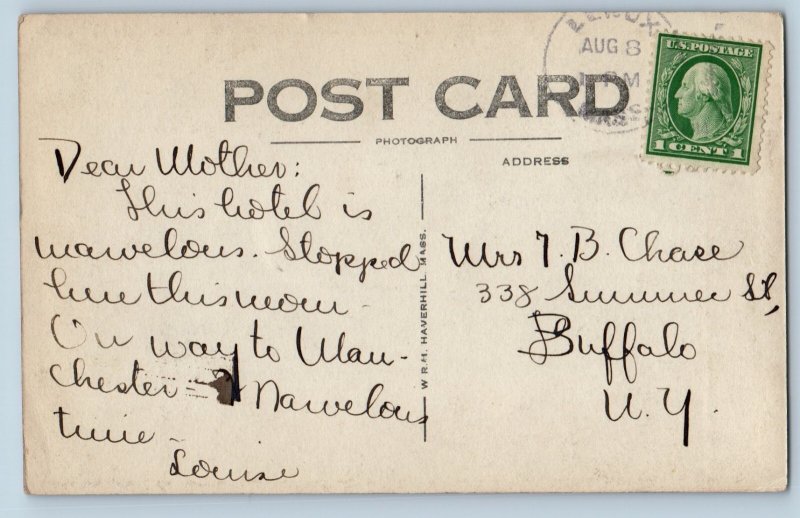 LENOX
AUG 8
PM
MASS
U.S. POSTAGE
1 CENT 1
POST CARD
PHOTOGRAPH
ADDRESS
Dear Mother:
This hotel is
marvelous. Stopped
here this morn-
On way to Man-
chester - Marvelous
time -
Louise
W.R.H. HAVERHILL, MASS.
Mrs T. B. Chase
338 Summer St,
Buffalo
N.Y.